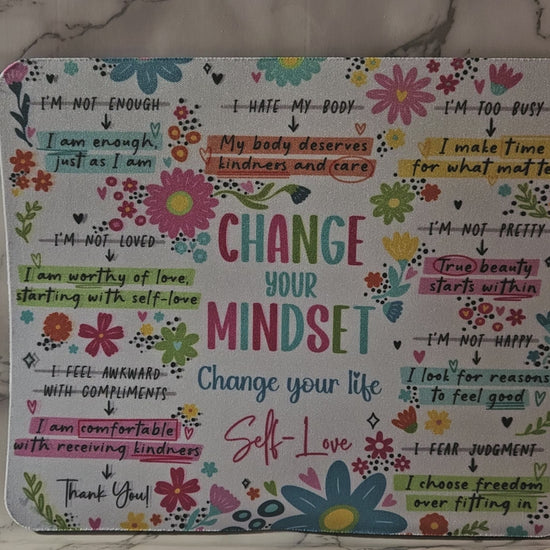 I'M NOT ENOUGH
I am enough,
just as I am
I HATE MY BODY
My body deserves
kindness and care
I'M TOO BUSY
I make time
for what matte
I'M NOT LOVED
I am worthy of love,
starting with self-love
CHANGE
YOUR
MINDSET
Change your life
Self-Love
I'M NOT PRETTY
True beauty
starts within
I FEEL AWKWARD
WITH COMPLIMENTS
I am comfortable
with receiving kindness
Thank You!
I'M NOT HAPPY
I look for reasons
to feel good
I FEAR JUDGMENT
I choose freedom
over fitting in